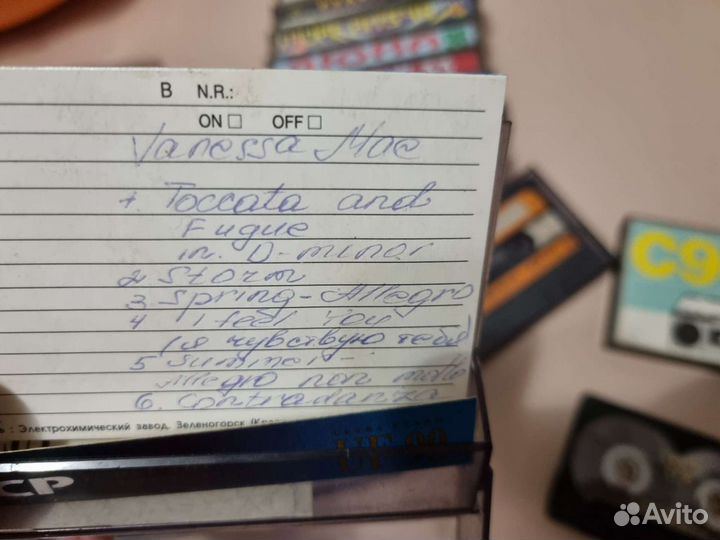 B N.R.:
ON □ OFF □
Vanessa Mae
1. Toccata and
Fugue
in. D-minor
2 Storm
3 Spring-Allegro
4 I feel You
(я чувствую тебя)
5 Summer-
Allegro non molto
6. Contradanza
: Электрохимический завод, Зеленогорск
C9
Avito